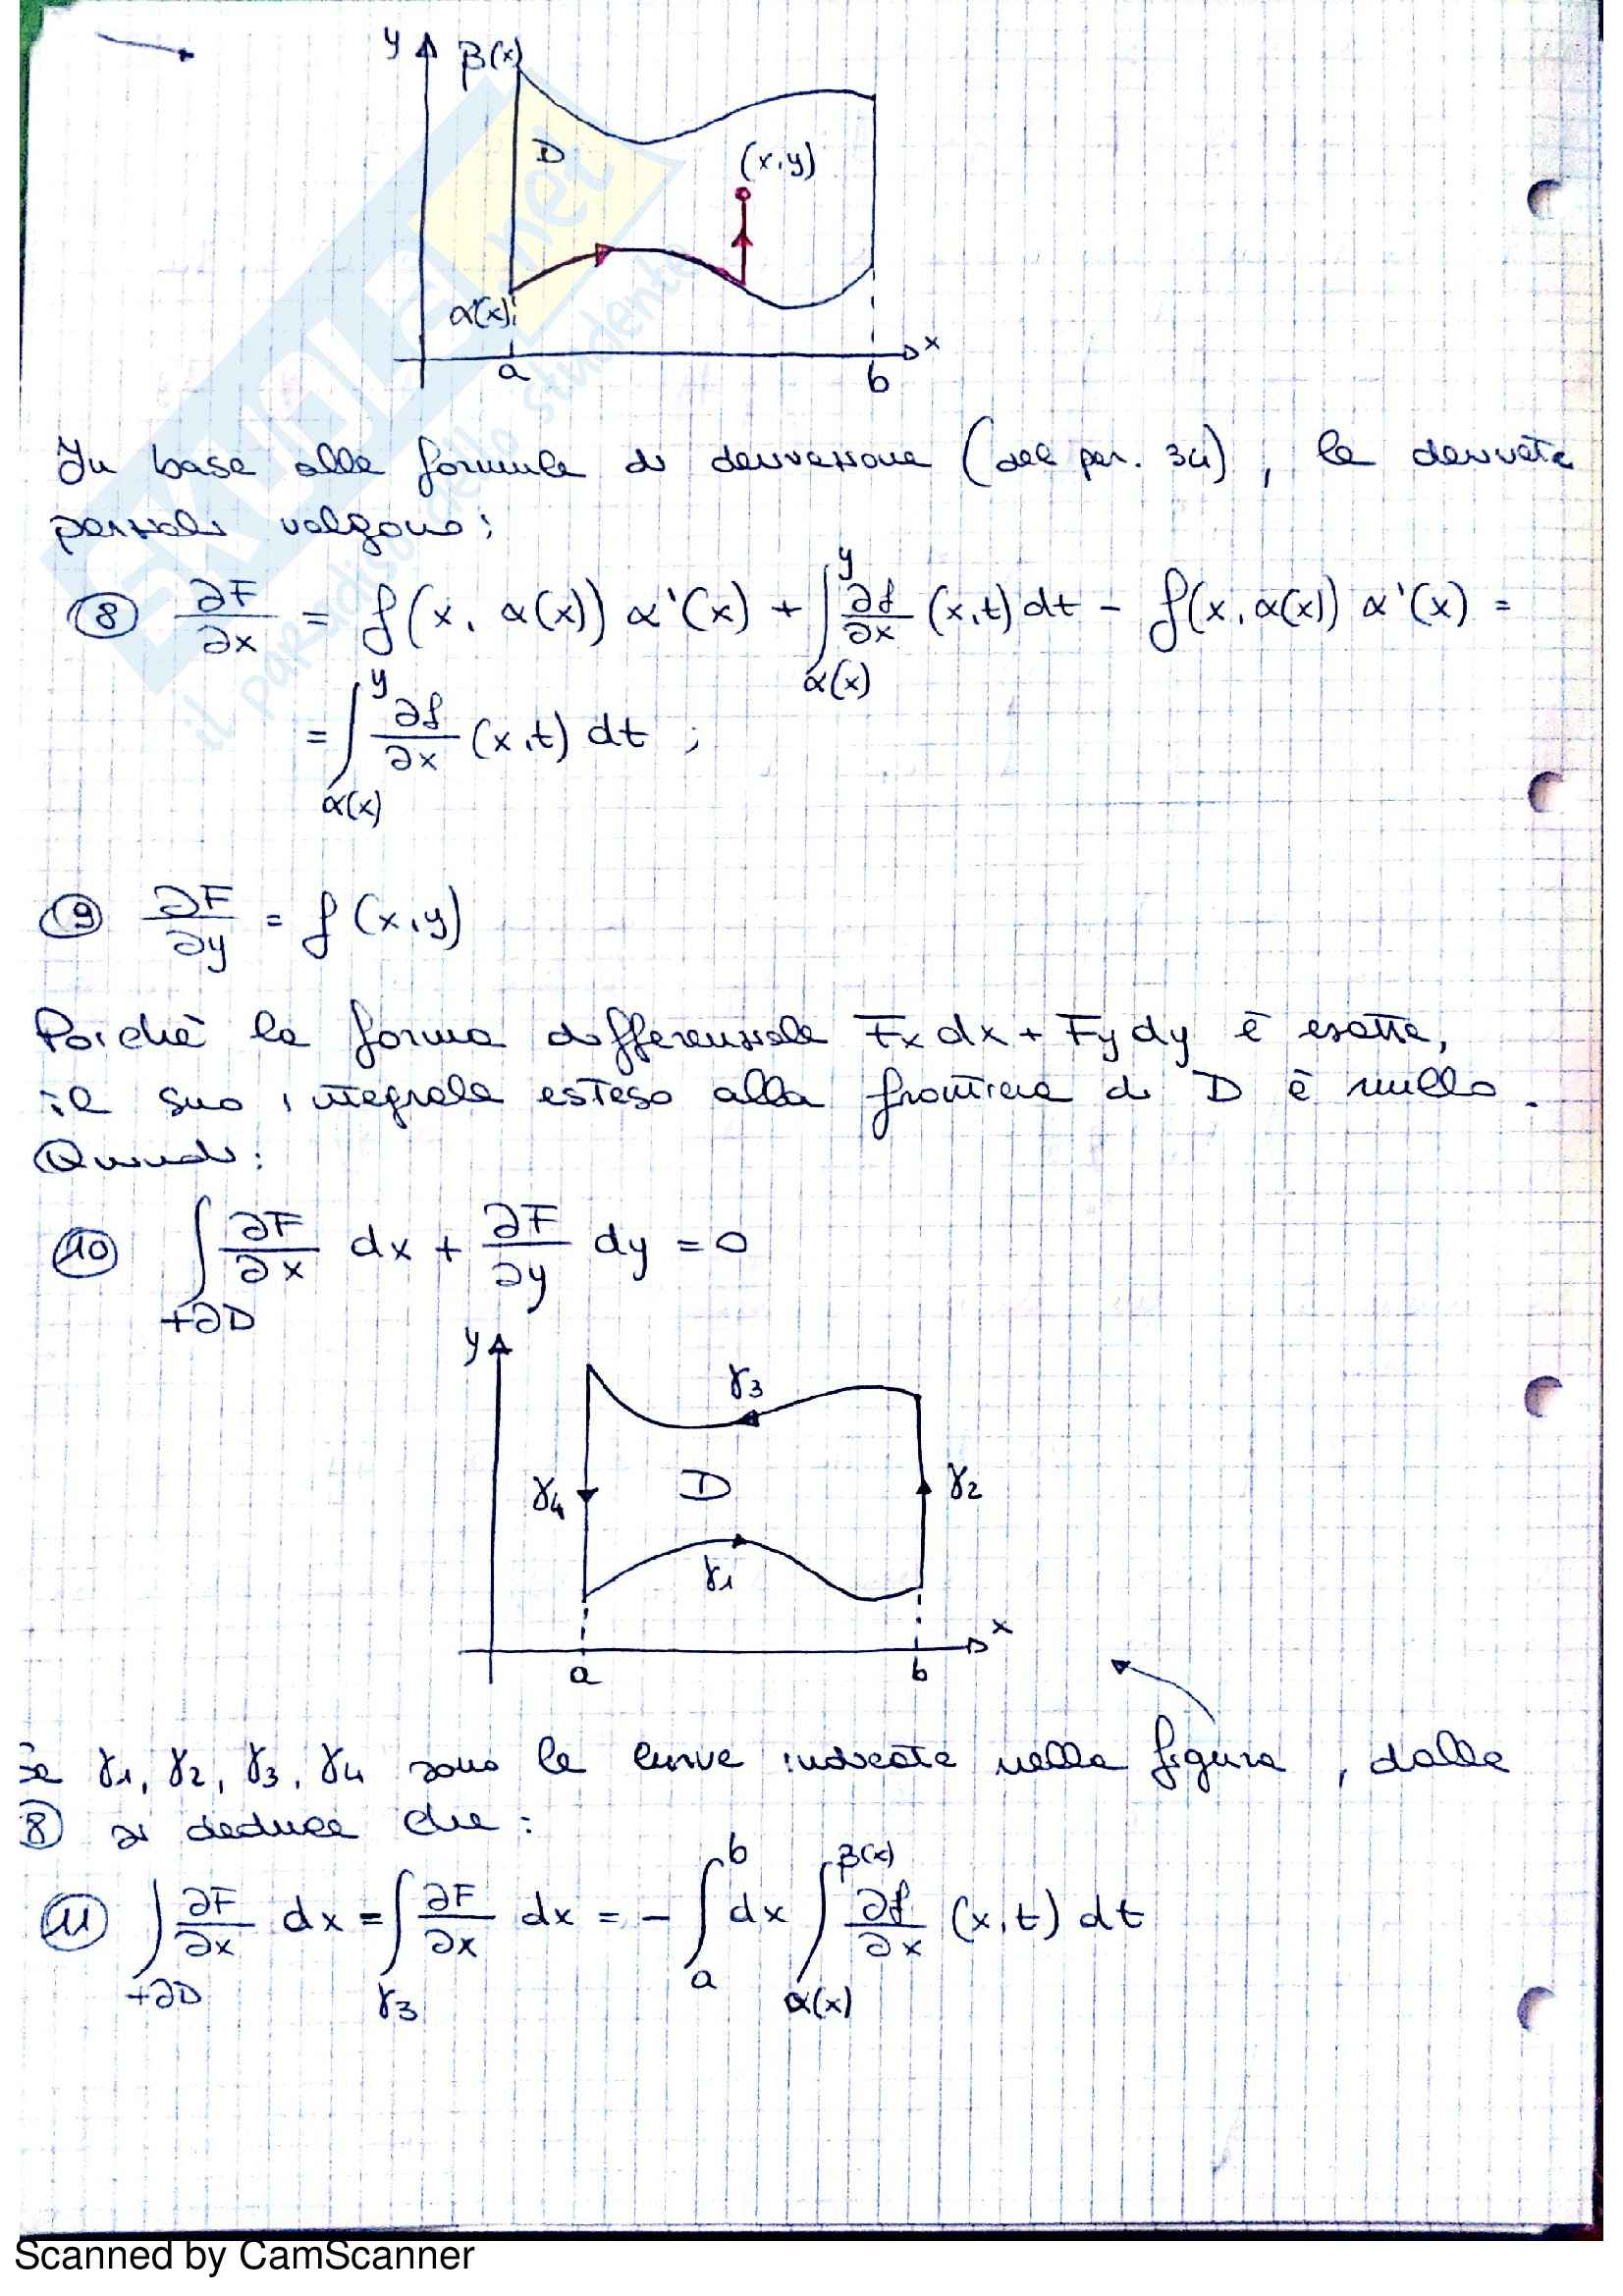 y β(x)
D
(x,y)
α(x)
x
a
b
In base alle formule di derivazione (del par. 34), le derivate
parziali valgono:
⑧ ∂F/∂x = f(x, α(x)) α'(x) + ∫_{α(x)}^{y} ∂f/∂x (x,t) dt - f(x, α(x)) α'(x) =
= ∫_{α(x)}^{y} ∂f/∂x (x,t) dt ;
⑨ ∂F/∂y = f(x,y)
Poichè la forma differenziale Fx dx + Fy dy è esatta,
il suo integrale esteso alla frontiera di D è nullo.
Quindi:
⑩ ∫_{+∂D} ∂F/∂x dx + ∂F/∂y dy = 0
y
γ3
γ4 D γ2
γ1
x
a
b
Se γ1, γ2, γ3, γ4 sono le curve indicate nella figura, dalla
⑧ si deduce che:
⑪ ∫_{+∂D} ∂F/∂x dx = ∫_{γ3} ∂F/∂x dx = - ∫_{a}^{b} dx ∫_{α(x)}^{β(x)} ∂f/∂x (x,t) dt
SKUOLA.net
il paradiso dello studente
Scanned by CamScanner